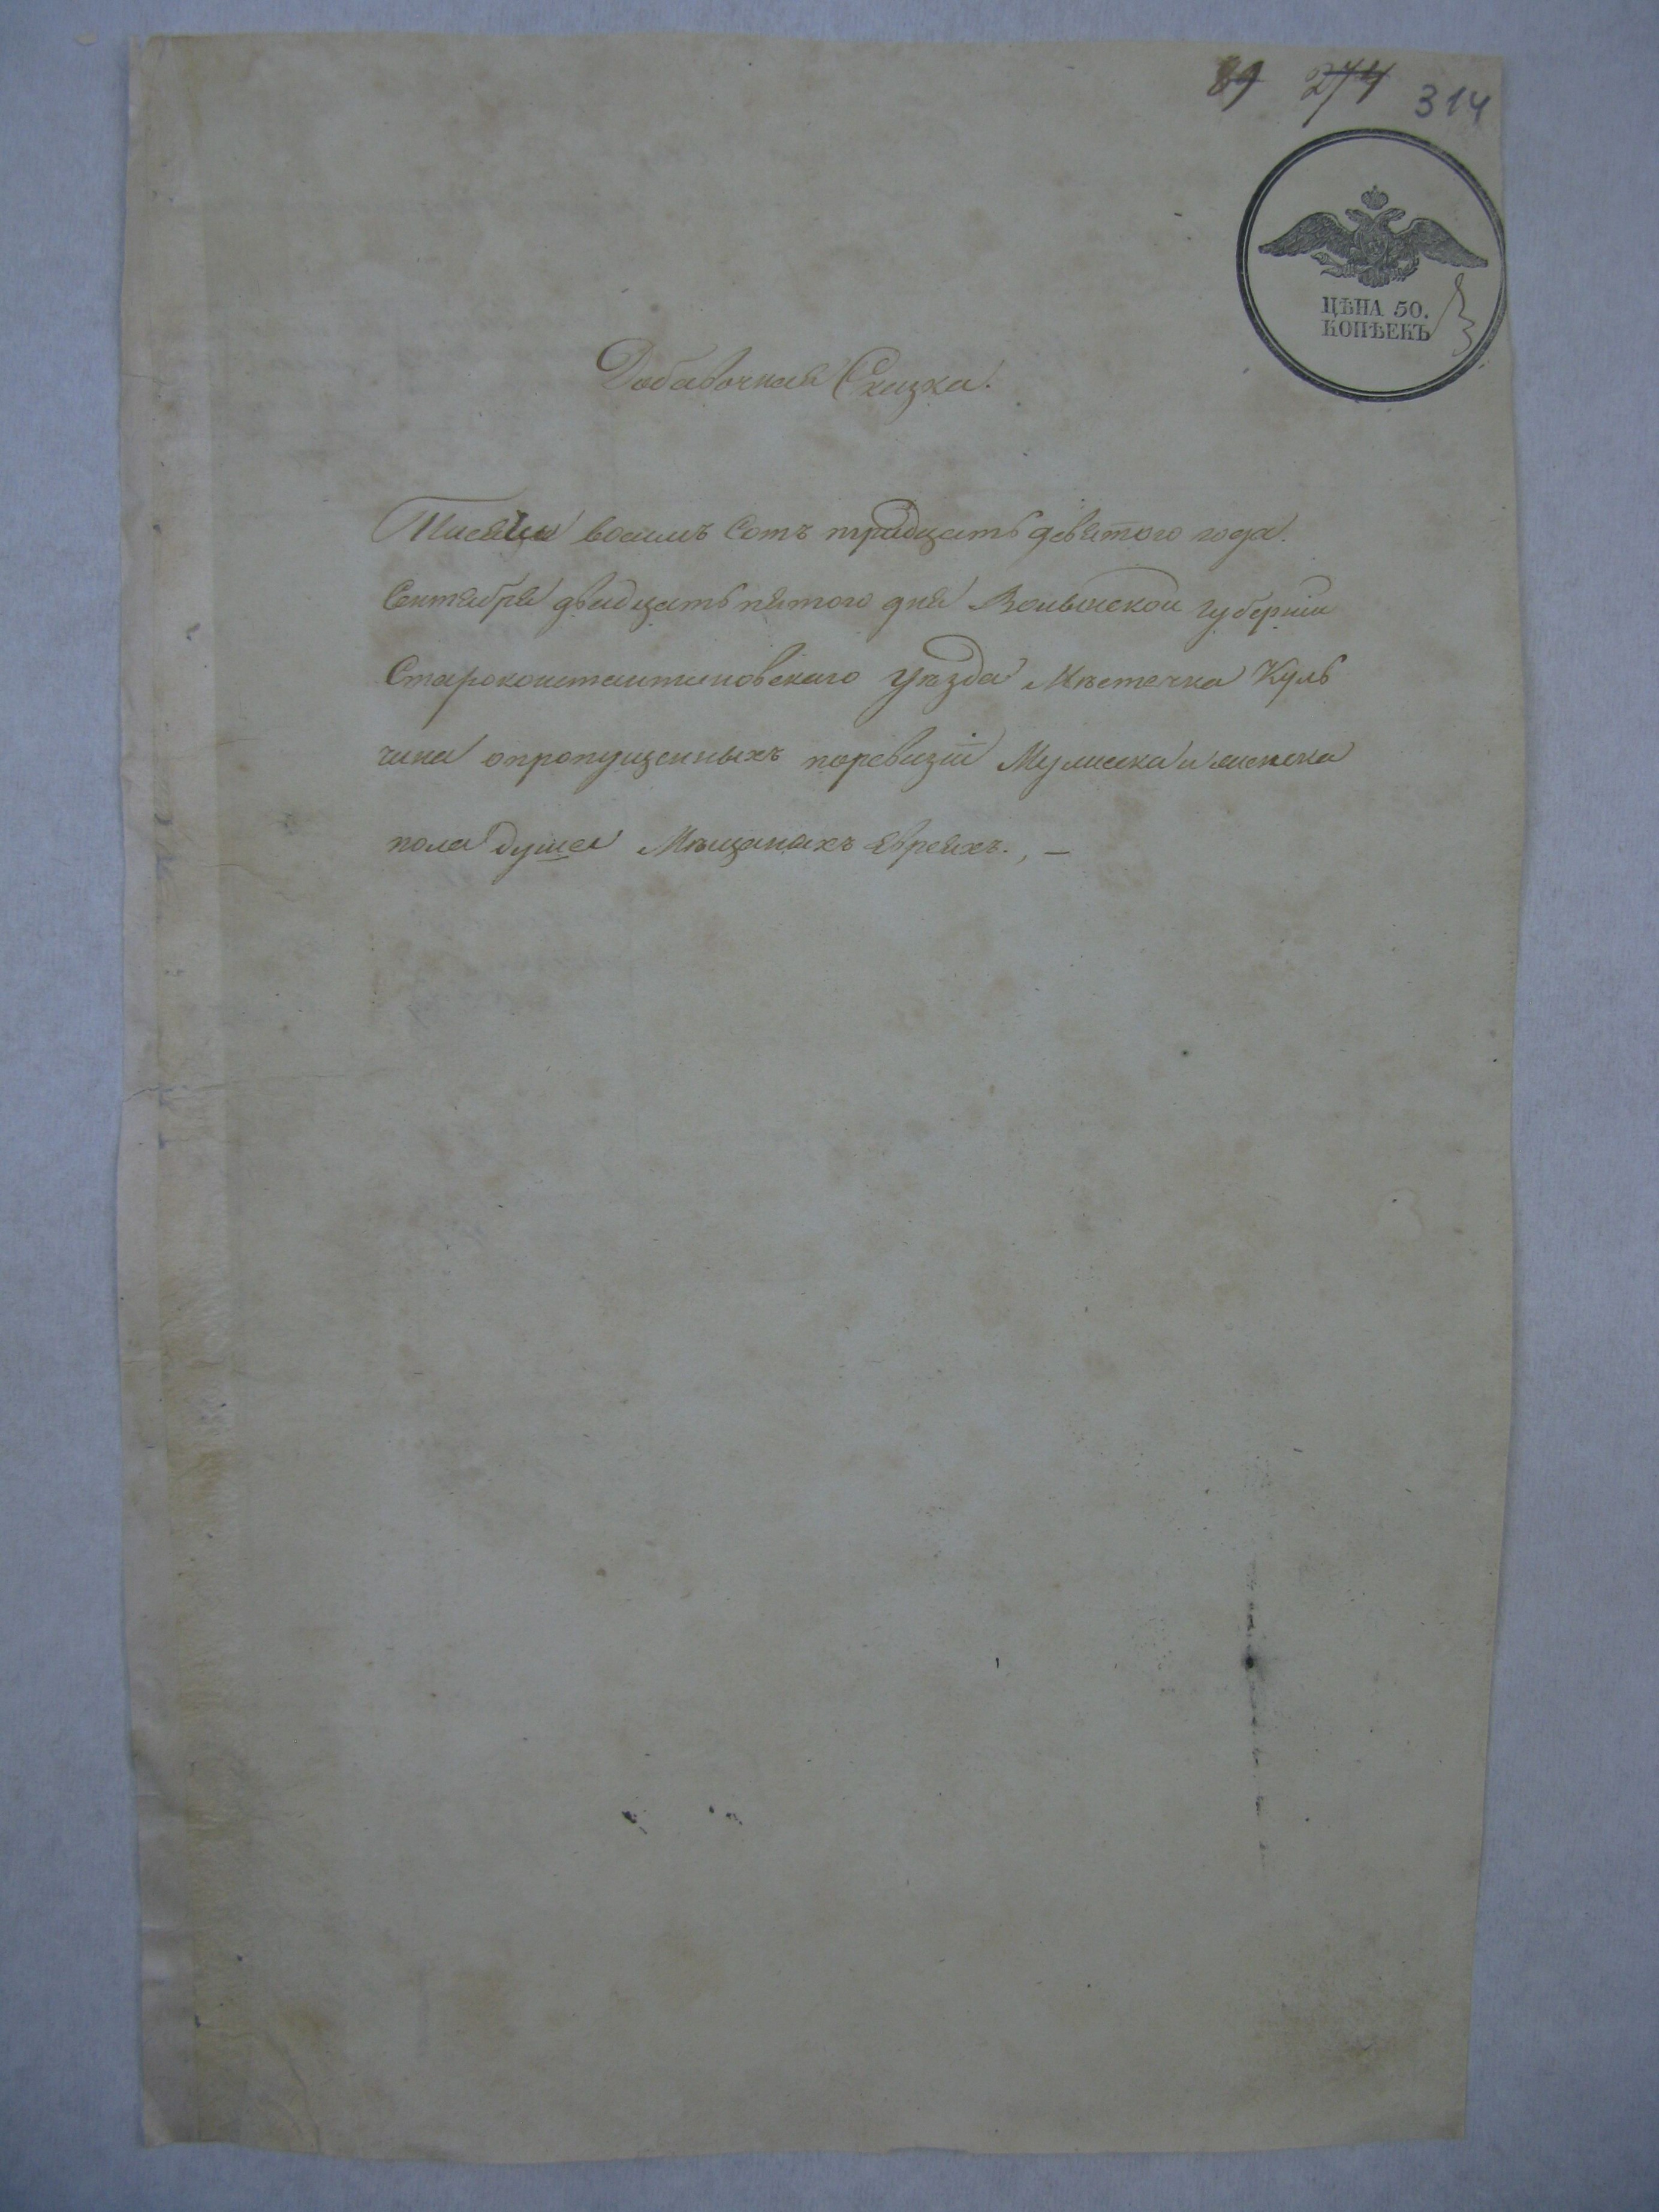 89 274 314
ЦѢНА 50.
КОПѢЕКЪ
Добавочная Сказка.
Тисяча восимъ сотъ тридцать девятого года.
Сентября двадцать пятого дня Волынской губерніи
Староконстантиновскаго уѣзда Мѣстечка Куль
чина опропущенныхъ поревизіи Мужеска и женска
пола душел Мѣщанахъ Евреяхъ., —